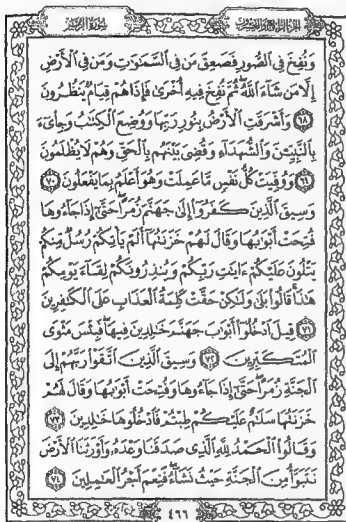 الجزء الرابع والعشرون
سورة الزمر
وَنُفِخَ فِي ٱلصُّورِ فَصَعِقَ مَن فِي ٱلسَّمَٰوَٰتِ وَمَن فِي ٱلْأَرْضِ
إِلَّا مَن شَآءَ ٱللَّهُ ثُمَّ نُفِخَ فِيهِ أُخْرَىٰ فَإِذَا هُمْ قِيَامٌ يَنظُرُونَ
٦٨ وَأَشْرَقَتِ ٱلْأَرْضُ بِنُورِ رَبِّهَا وَوُضِعَ ٱلْكِتَٰبُ وَجِا۟ىٓءَ
بِٱلنَّبِيِّـۧنَ وَٱلشُّهَدَآءِ وَقُضِىَ بَيْنَهُم بِٱلْحَقِّ وَهُمْ لَا يُظْلَمُونَ
٦٩ وَوُفِّيَتْ كُلُّ نَفْسٍ مَّا عَمِلَتْ وَهُوَ أَعْلَمُ بِمَا يَفْعَلُونَ ٧٠
وَسِيقَ ٱلَّذِينَ كَفَرُوٓا۟ إِلَىٰ جَهَنَّمَ زُمَرًا حَتَّىٰٓ إِذَا جَآءُوهَا
فُتِحَتْ أَبْوَٰبُهَا وَقَالَ لَهُمْ خَزَنَتُهَآ أَلَمْ يَأْتِكُمْ رُسُلٌ مِّنكُمْ
يَتْلُونَ عَلَيْكُمْ ءَايَٰتِ رَبِّكُمْ وَيُنذِرُونَكُمْ لِقَآءَ يَوْمِكُمْ
هَٰذَا قَالُوا۟ بَلَىٰ وَلَٰكِنْ حَقَّتْ كَلِمَةُ ٱلْعَذَابِ عَلَى ٱلْكَٰفِرِينَ
٧١ قِيلَ ٱدْخُلُوٓا۟ أَبْوَٰبَ جَهَنَّمَ خَٰلِدِينَ فِيهَا فَبِئْسَ مَثْوَى
ٱلْمُتَكَبِّرِينَ ٧٢ وَسِيقَ ٱلَّذِينَ ٱتَّقَوْا۟ رَبَّهُمْ إِلَى
ٱلْجَنَّةِ زُمَرًا حَتَّىٰٓ إِذَا جَآءُوهَا وَفُتِحَتْ أَبْوَٰبُهَا وَقَالَ لَهُمْ
خَزَنَتُهَا سَلَٰمٌ عَلَيْكُمْ طِبْتُمْ فَٱدْخُلُوهَا خَٰلِدِينَ ٧٣
وَقَالُوا۟ ٱلْحَمْدُ لِلَّهِ ٱلَّذِى صَدَقَنَا وَعْدَهُۥ وَأَوْرَثَنَا ٱلْأَرْضَ
نَتَبَوَّأُ مِنَ ٱلْجَنَّةِ حَيْثُ نَشَآءُ فَنِعْمَ أَجْرُ ٱلْعَٰمِلِينَ ٧٤
٤٦٦